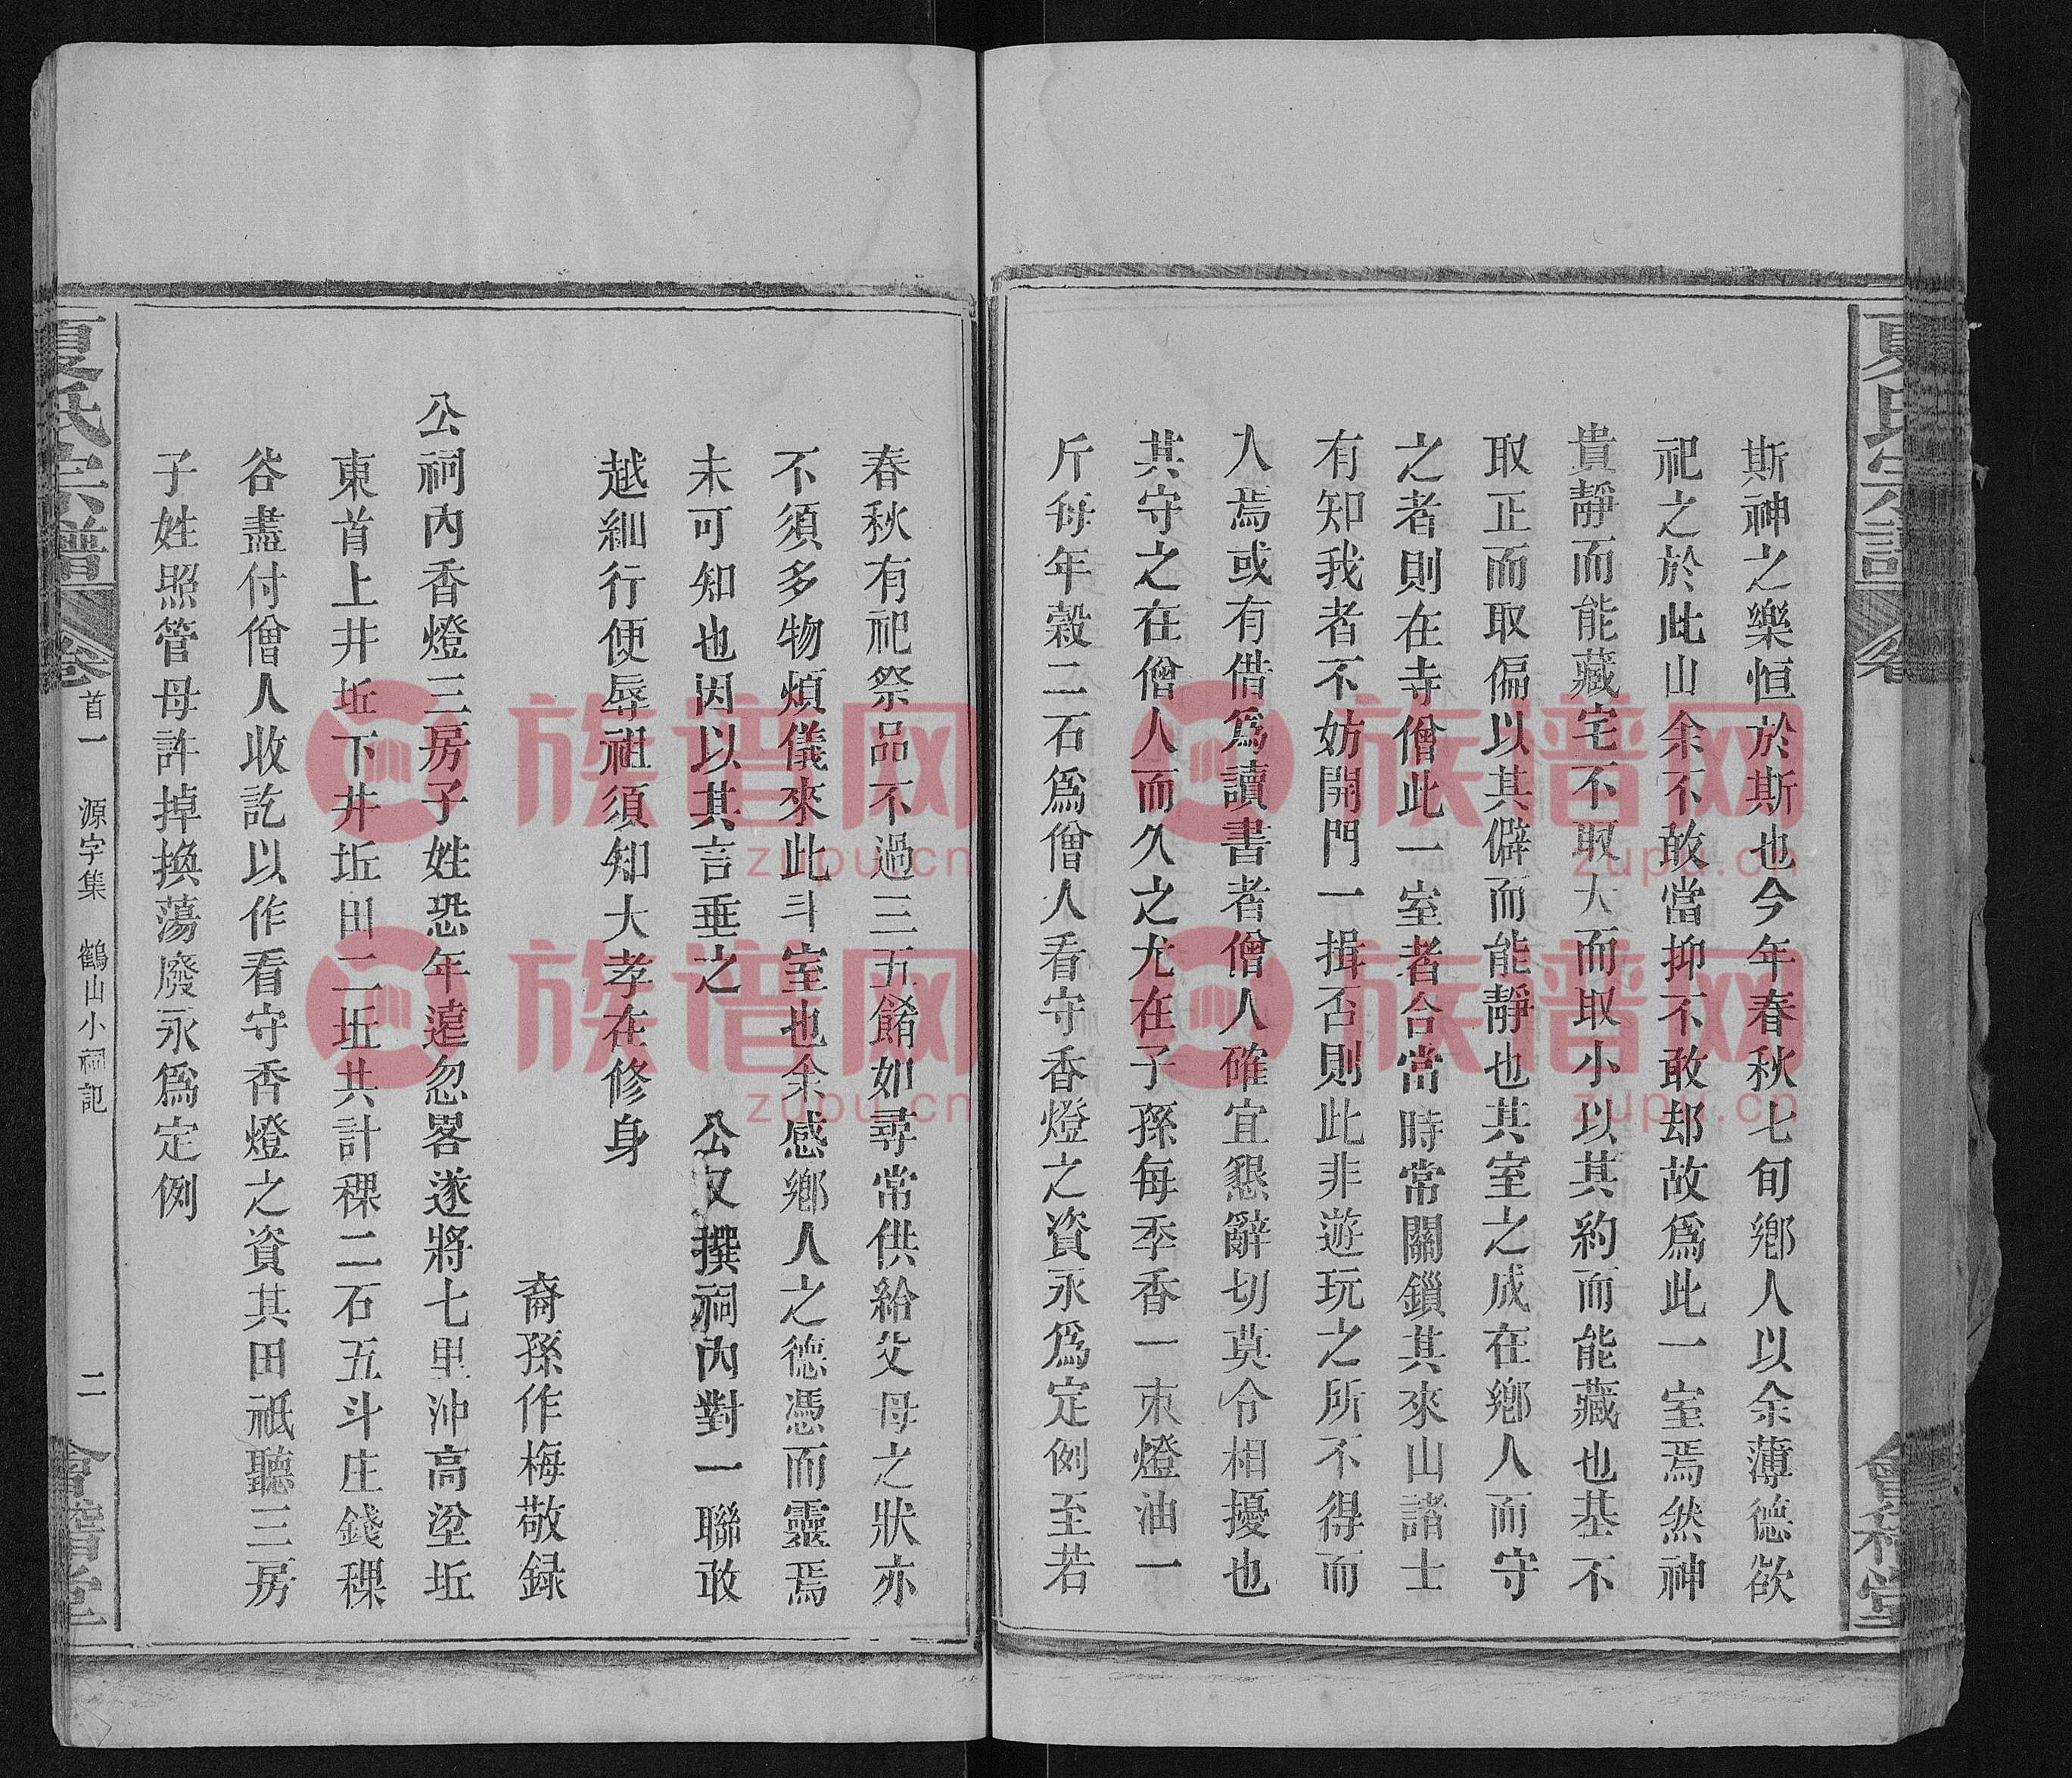 夏氏宗譜 卷
會稽堂
斯神之樂恒於斯也今年春秋七旬鄉人以余薄德欲
祀之於此山余不敢當抑不敢却故爲此一室焉然神
貴靜而能藏宅不取大而取小以其約而能藏也基不
取正而取偏以其僻而能靜也其室之成在鄉人而守
之者則在寺僧此一室者合當時常關鎖其來山諸士
有知我者不妨開門一揖否則此非遊玩之所不得而
人焉或有借爲讀書者僧人確宜懇辭切莫令相擾也
其守之在僧人而久之尤在子孫每季香一束燈油一
斤每年穀二石爲僧人看守香燈之資永爲定例至若
春秋有祀祭品不過三五餚如尋常供給父母之狀亦
不須多物煩儀來此斗室也余感鄉人之德憑而靈焉
未可知也因以其言垂之 公又撰祠內對一聯敢
越細行便辱祖須知大孝在修身
裔孫作梅敬録
公祠內香燈三房子姓恐年遠忽畧遂將七里沖高塋坵
東首上井坵下井坵田二坵共計稞二石五斗庄錢稞
谷盡付僧人收訖以作看守香燈之資其田祇聽三房
子姓照管毋許掉換蕩廢永爲定例
夏氏宗譜 卷首一 源字集 鶴山小祠記 二 會稽堂
族谱网
zupu.cn
族谱网
zupu.cn
族谱网
zupu.cn
族谱网
zupu.cn